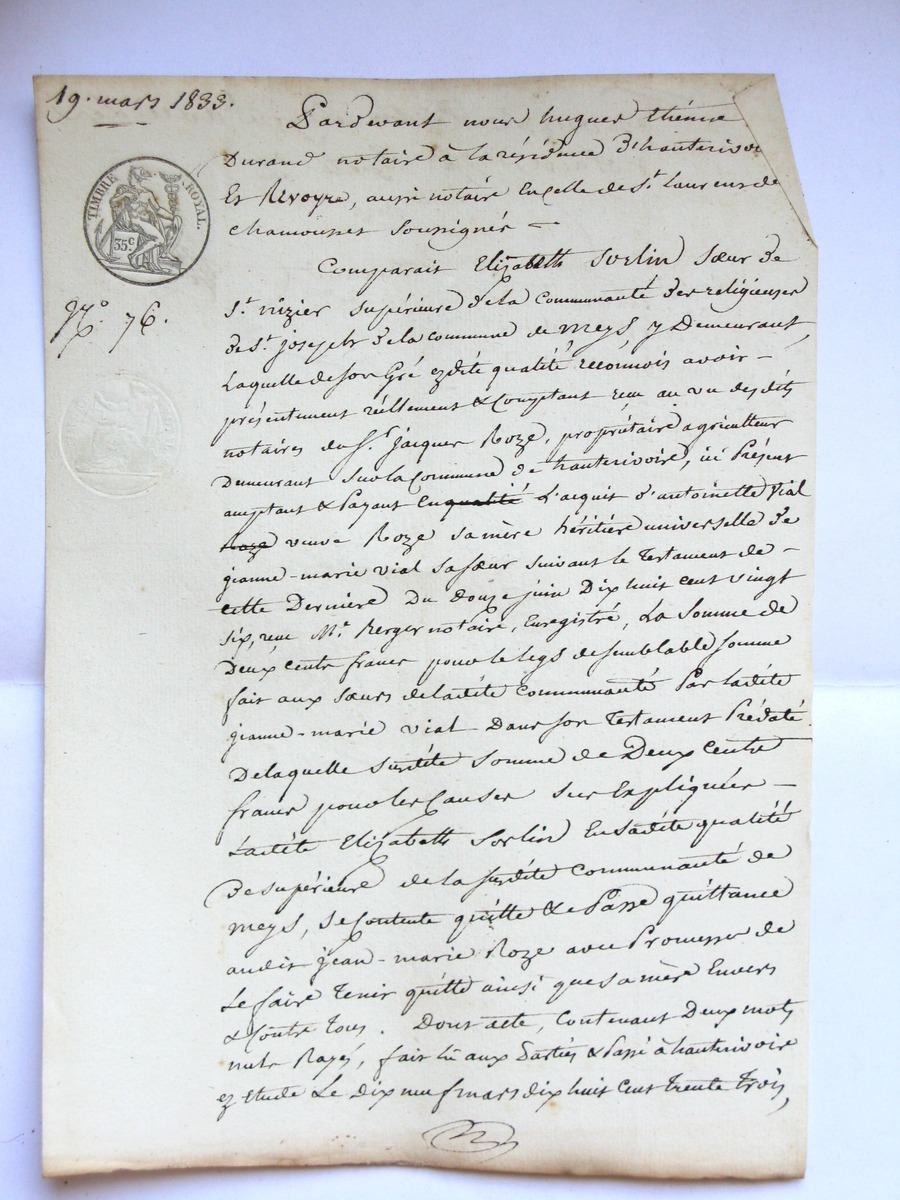 19. mars 1833.
Pardevant nous hugues Ethienne
Durand notaire à la résidence d'hauterivoire
Et Revoyre, aussi notaire En celle de St. Laurens de
chamousset soussignés
TIMBRE ROYAL.
35c
Comparait Elizabeth Sorlin Sœur de
St. nizier supérieure de la Communauté des religieuses
de St. joseph de la commune de meys y Demeurant,
N° 76.
Laquelle de son Gré ez dite qualité reconnois avoir
présentement réellement & Comptant reçu au vu des dits
notaires du Sr. jacques Roze, propriétaire agriculteur
Demeurant sur la Commune de hauterivoire, ici Présent
acceptant & Payant En qualité L'acquit d'antoinette Vial
Roze veuve Roze sa mère héritière universelle de
jeanne-marie vial sa sœur suivant le Testament de
cette Dernière Du douze juin Dix huit cent vingt
six, reçu Me. Berger notaire, Enregistré, La Somme de
Deux cents francs pour le legs de semblable somme
fait aux sœurs de ladite Communauté Par ladite
jeanne-marie vial Dans son Testament Prédaté
De laquelle susdite somme de Deux Cents
francs pour les Causes sus Expliquées
Ladite Elizabeth Sorlin En sadite qualité
De supérieure de la susdite Communauté de
meys, se Contente quitte & Passe quittance
audit jean-marie Roze avec Promesse de
Le faire Tenir quitte ainsi que sa mère Envers
& Contre Tous. Dont acte, Contenant Deux mots
nuls Rayés, fait lu aux Parties & Passé à hauterivoire
ez Etude Le Dix neuf mars dix huit Cent Trente Trois,